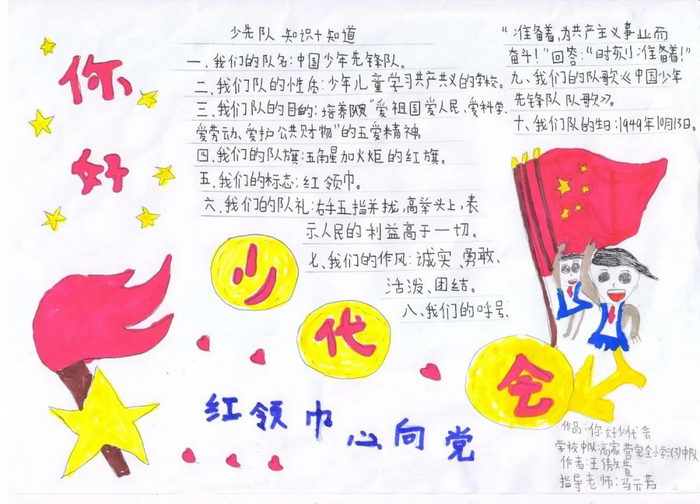 你好
少先队知识十知道
一、我们的队名:中国少年先锋队。
二、我们队的性质:少年儿童学习共产主义的学校。
三、我们队的目的:培养队员"爱祖国爱人民、爱科学、
爱劳动、爱护公共财物"的五爱精神。
四、我们的队旗:五角星加火炬的红旗。
五、我们的标志:红领巾。
六、我们的队礼:右手五指并拢,高举头上,表
示人民的利益高于一切。
七、我们的作风:诚实、勇敢、
活泼、团结。
八、我们的呼号:
"准备着,为共产主义事业而
奋斗!"回答:"时刻准备着!"
九、我们的队歌《中国少年
先锋队队歌》。
十、我们队的生日:1949年10月13日。
少代会
红领巾心向党
作品:你好少代会
学校中队:高家营完全小学 中队
作者:王
指导老师:马云芳